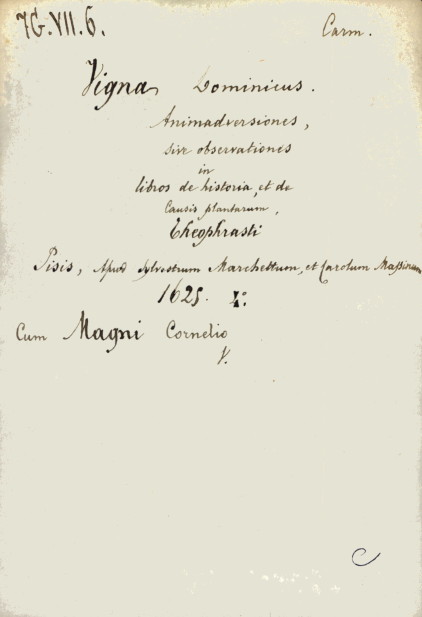 7G.VII.6.
Carm.
Vigna Dominicus.
Animadversiones,
sive observationes
in
libros de historia, et de
Causis plantarum,
Theophrasti
Pisis, Apud Sylvestrum Marchettum, et Carolum Massinum
1625. 4.º
Cum Magni Cornelio
V.
C